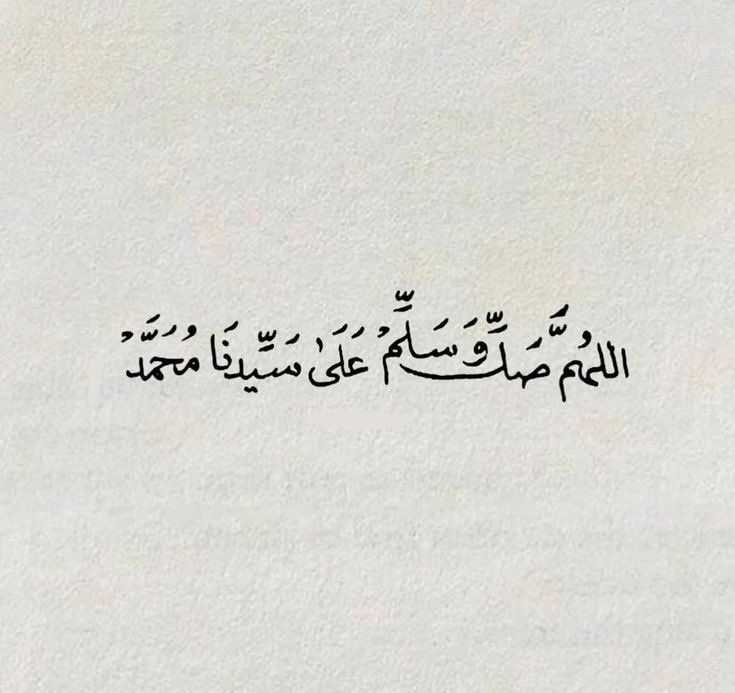 اللهُمَّ صَلِّ وَسَلِّمْ عَلَىٰ سَيِّدِنَا مُحَمَّدْ